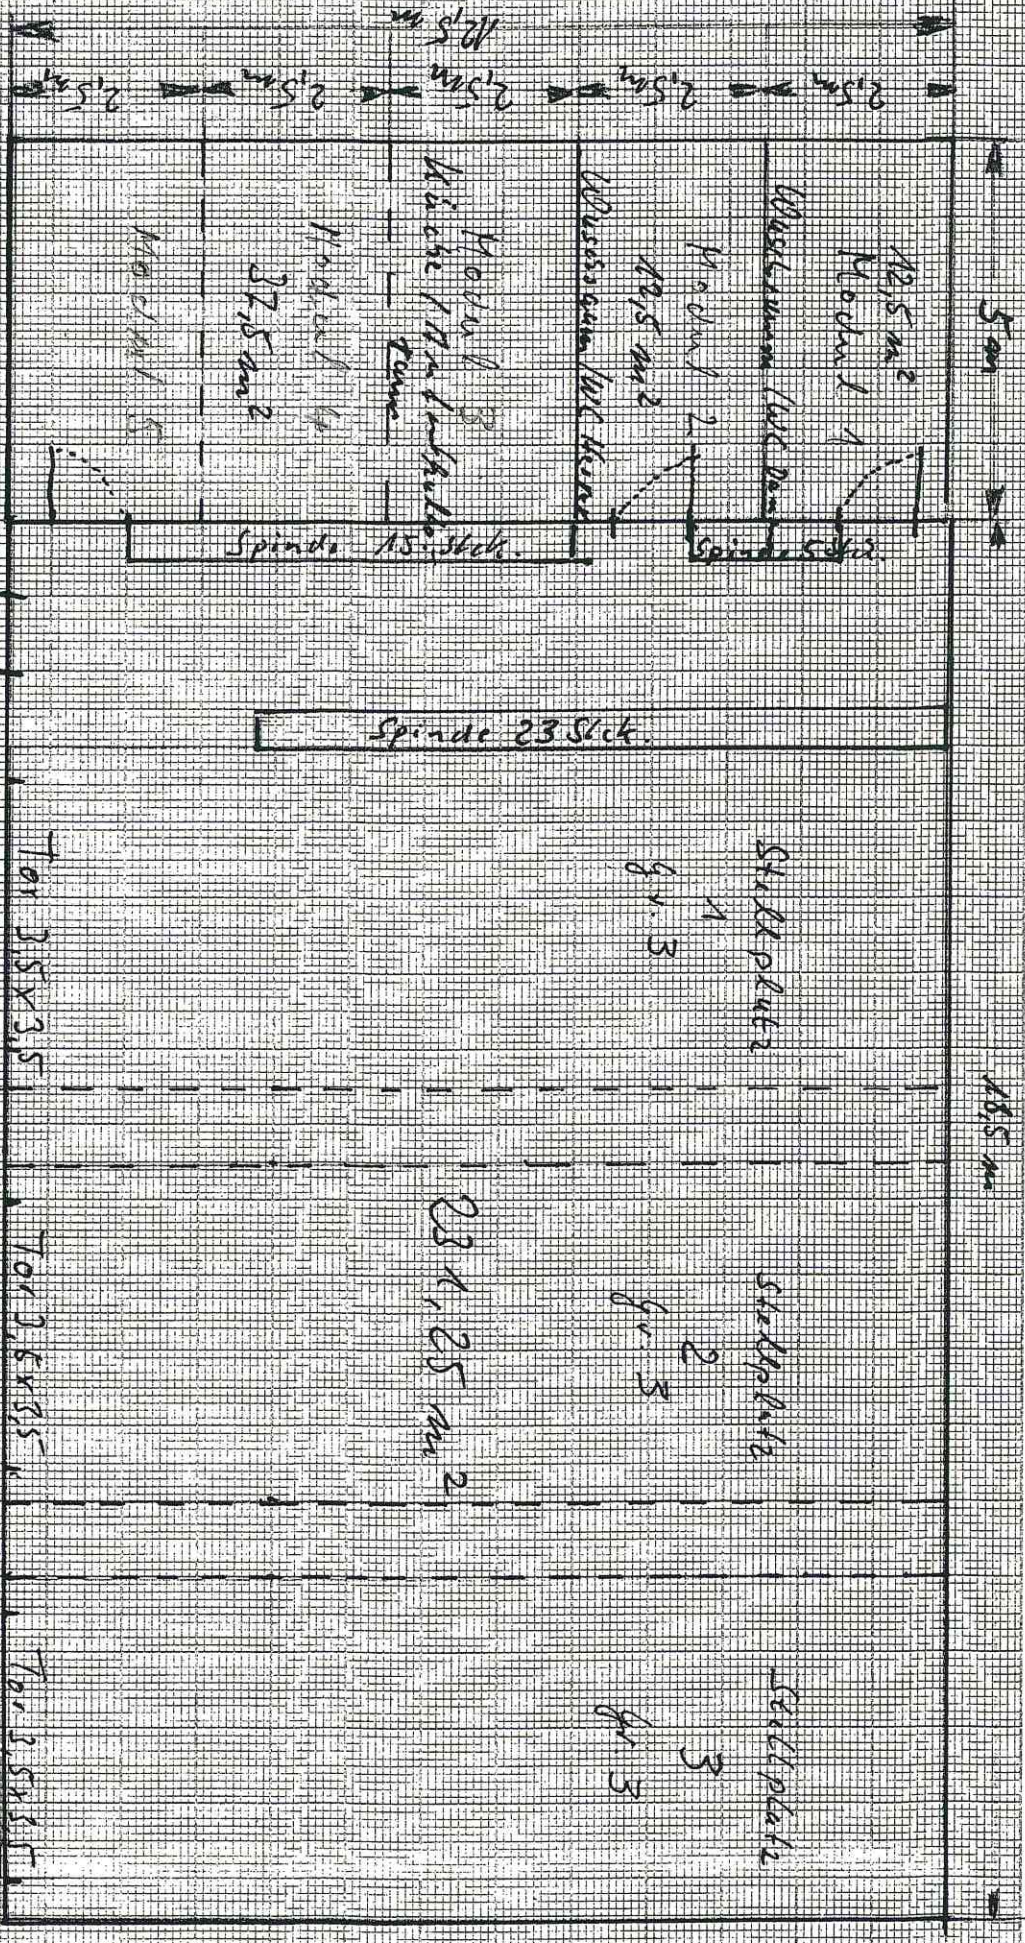 5m
18,5 m
12,5 m
2,5m
2,5m
2,5m
2,5m
2,5m
12,5 m²
Modul 1
Waschraum/WC
Modul 2
12,5 m²
Waschraum/WC Herren
Modul 3
Küche/
Modul 4
37,5 m²
Modul 5
Spinde 15 Stck.
Spinde 5 Stck.
Spinde 23 Stck.
Stellplatz
1
Gr. 3
Stellplatz
2
Gr. 3
Stellplatz
3
Gr. 3
231,25 m²
Tor 3,5x3,5
Tor 3,6x3,5
Tor 3,5x3,5